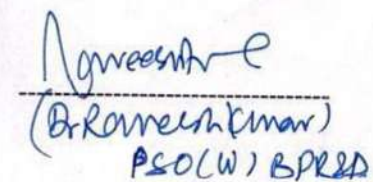 (Dr Raneesh Kumar)
PSO(W) BPR&D